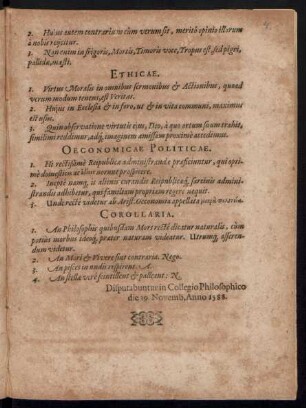 2. Huius autem contrarium cùm verum sit, meritò opinio illorum
à nobis rejicitur.
3. Non enim in frigoris, Mortis, Timoris vice, Tropus est, sed pigri,
pallidæ, mæsti.
ETHICAE.
1. Virtus Moralis in omnibus sermonibus & Actionibus, quoad
verum modum tenens, est Veritas.
2. Hujus in Ecclesia & in foro, ut & in vita communi, maximus
est usus.
3. Quin observatione virtutis ejus, Deo, à quo ortum suum trahit,
simillimi reddimur, adq; imaginem amissam proximè accedimus.
OECONOMICAE POLITICAE.
1. Hi rectissimè Reipublicæ administrandæ præficiuntur, qui opti-
mè domesticæ
2. Ineptè namq; is alienis curandis Rebuspublicis, adminis-
trandis adhibetur, qui familiam propriam regere nequit.
3. Unde rectè videtur ab Arist. Oeconomia appellata
COROLLARIA.
1. An Philosophis quibusdam Mors rectè dicatur naturalis, cùm
potius moribus ideoq; præter naturam videatur. Utrumq; asseren-
dum videtur.
2. An Mori & Vivere sint contraria. Nego.
3. An pisces in undis respirent. A.
4. An stellæ verè scintillent & palleant. N.
Disputabuntur in Collegio Philosophico
die 10. Novemb, Anno 1588.